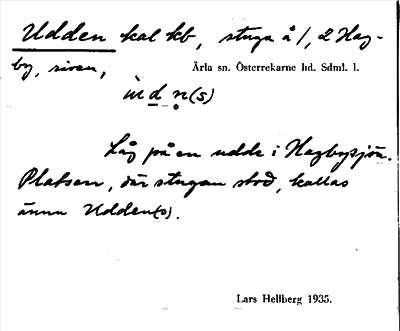 Udden kal kb, stuga å /, 2 Hag-
by, riven,
Ärla sn. Österrekarne hd. Sdml. l.
ùd n̥(s)
Låg på en udde i Hagbysjön.
Platsen, där stugan stod, kallas
ännu Udden(s).
Lars Hellberg 1935.